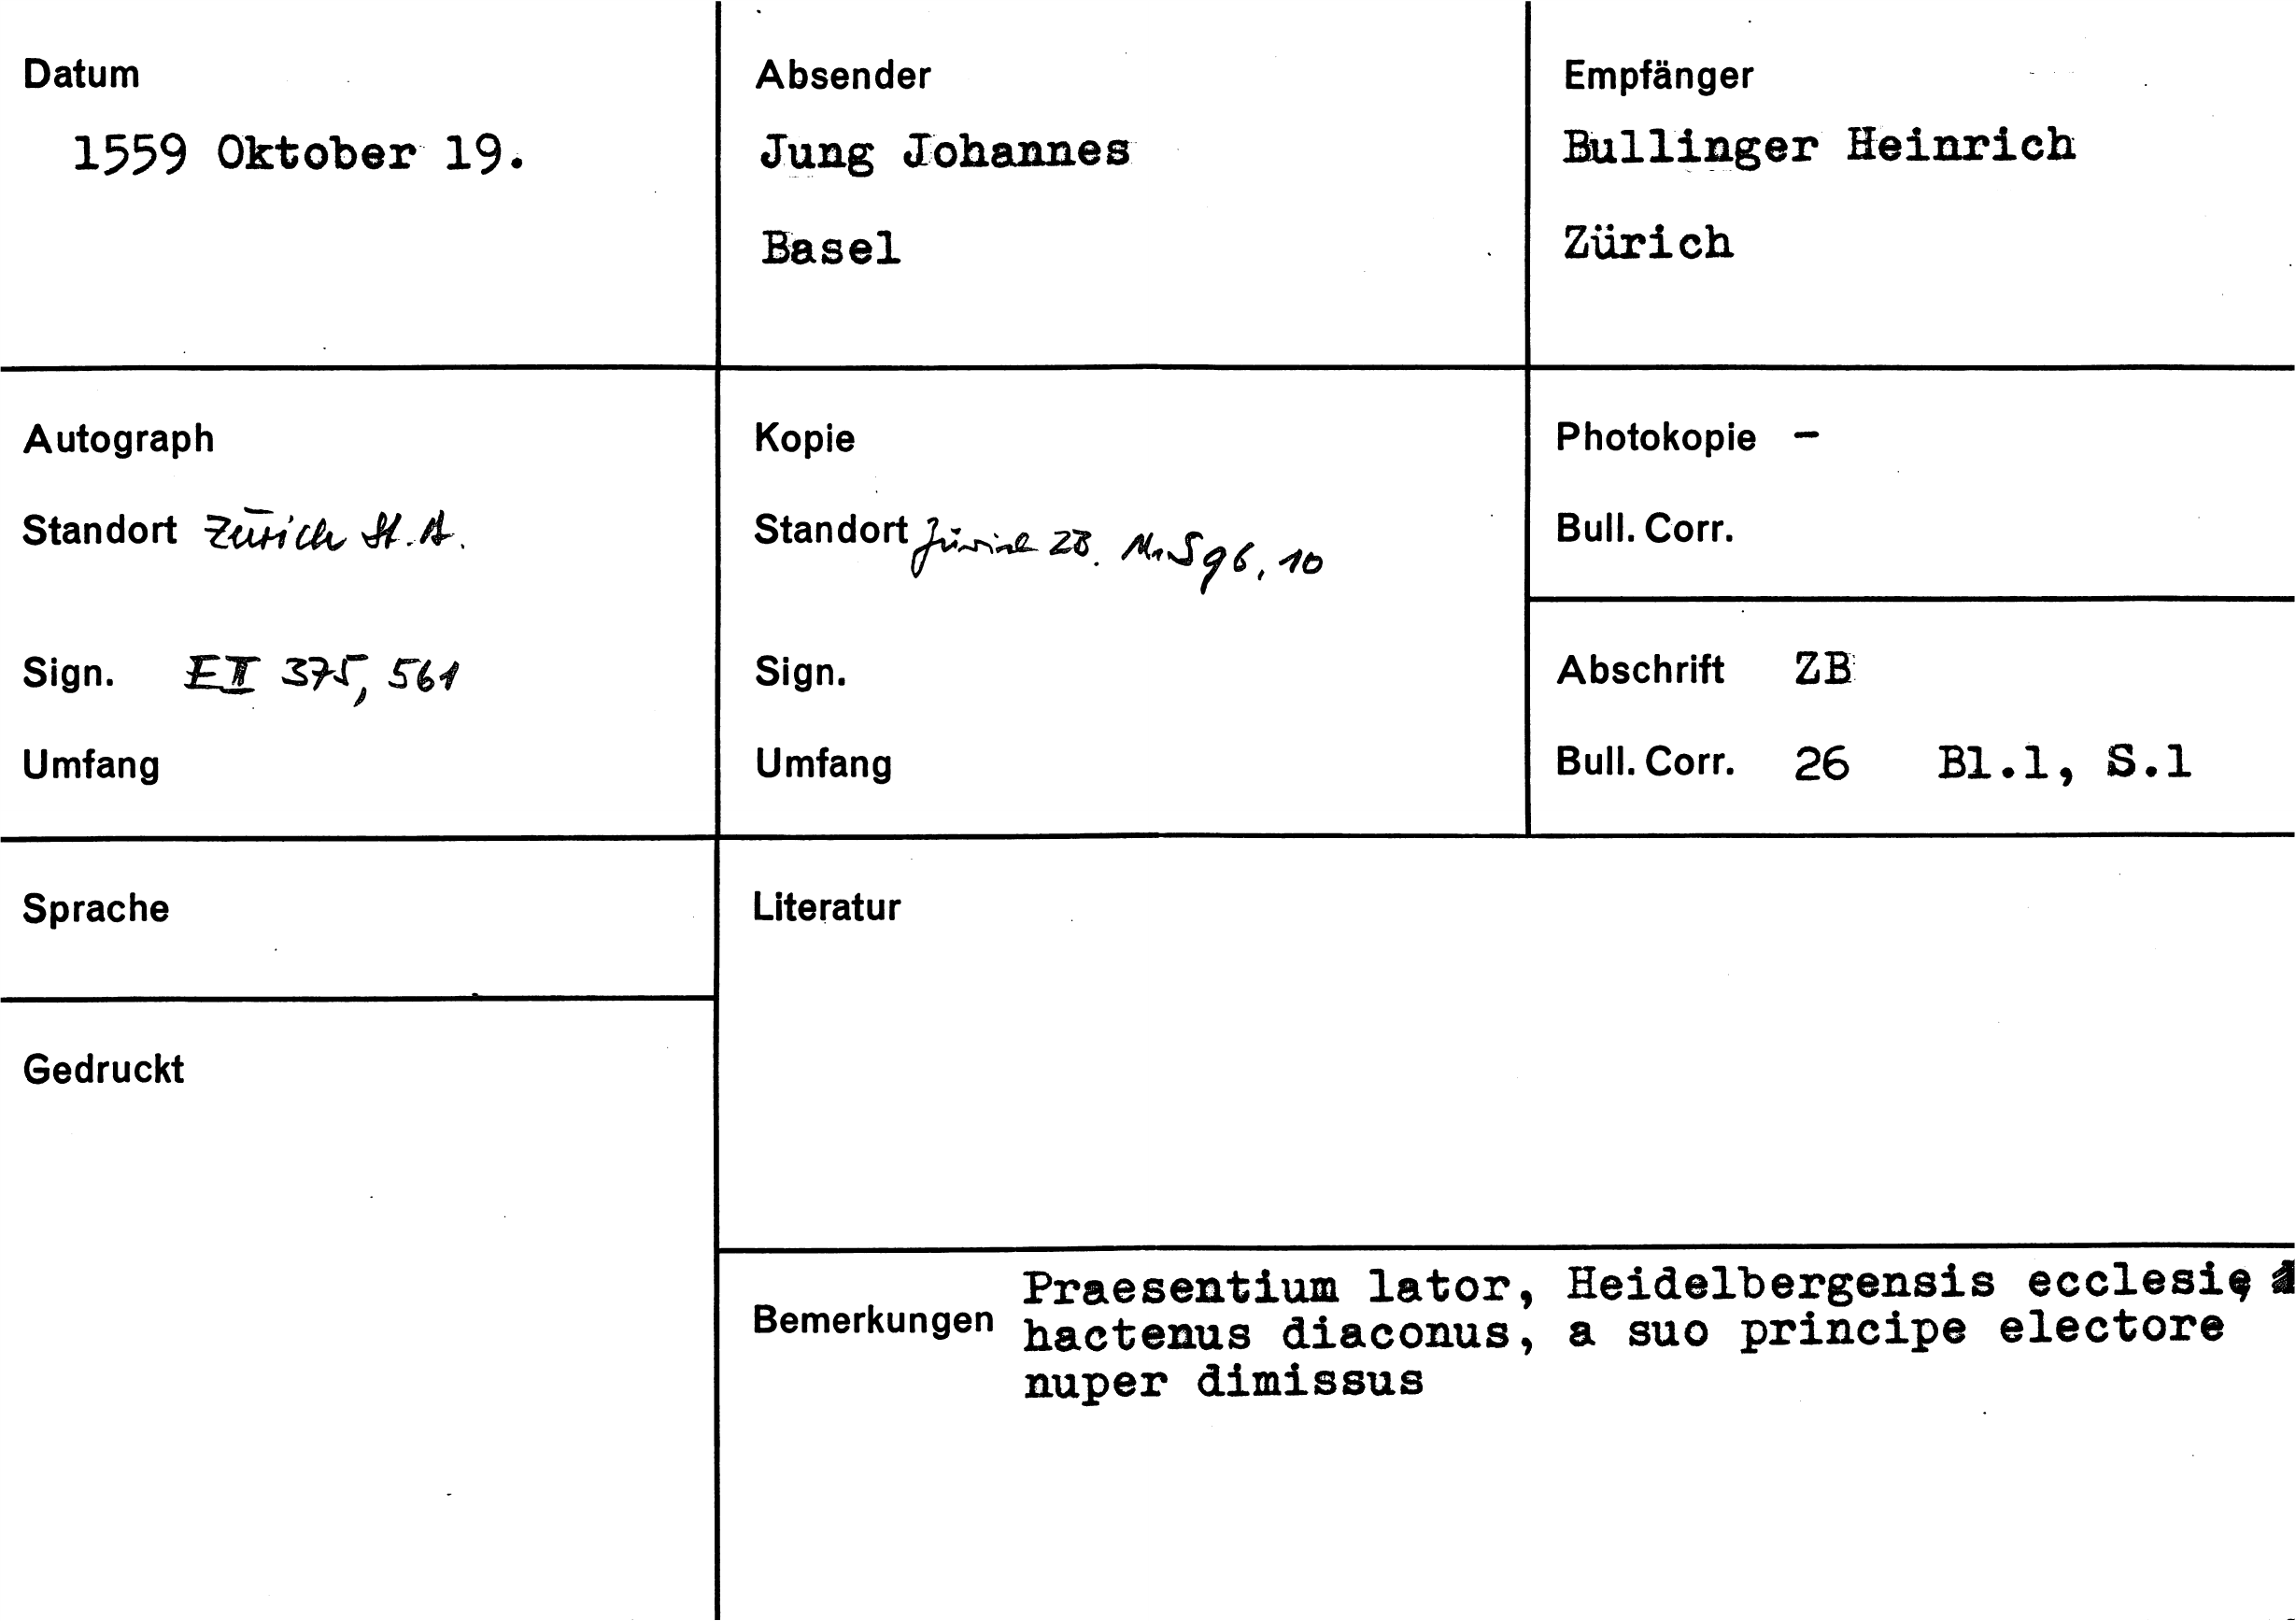 Datum
1559 Oktober 19.
Absender
Jung Johannes
Basel
Empfänger
Bullinger Heinrich
Zürich
Autograph
Standort Zürich St. A.
Sign. E II 375, 561
Umfang
Kopie
Standort Zürich ZB. Ms S 96, 10
Sign.
Umfang
Photokopie -
Bull. Corr.
Abschrift ZB
Bull. Corr. 26 Bl.1, S.1
Sprache
Gedruckt
Literatur
Bemerkungen
Praesentium lator, Heidelbergensis ecclesię
hactenus diaconus, a suo principe electore
nuper dimissus